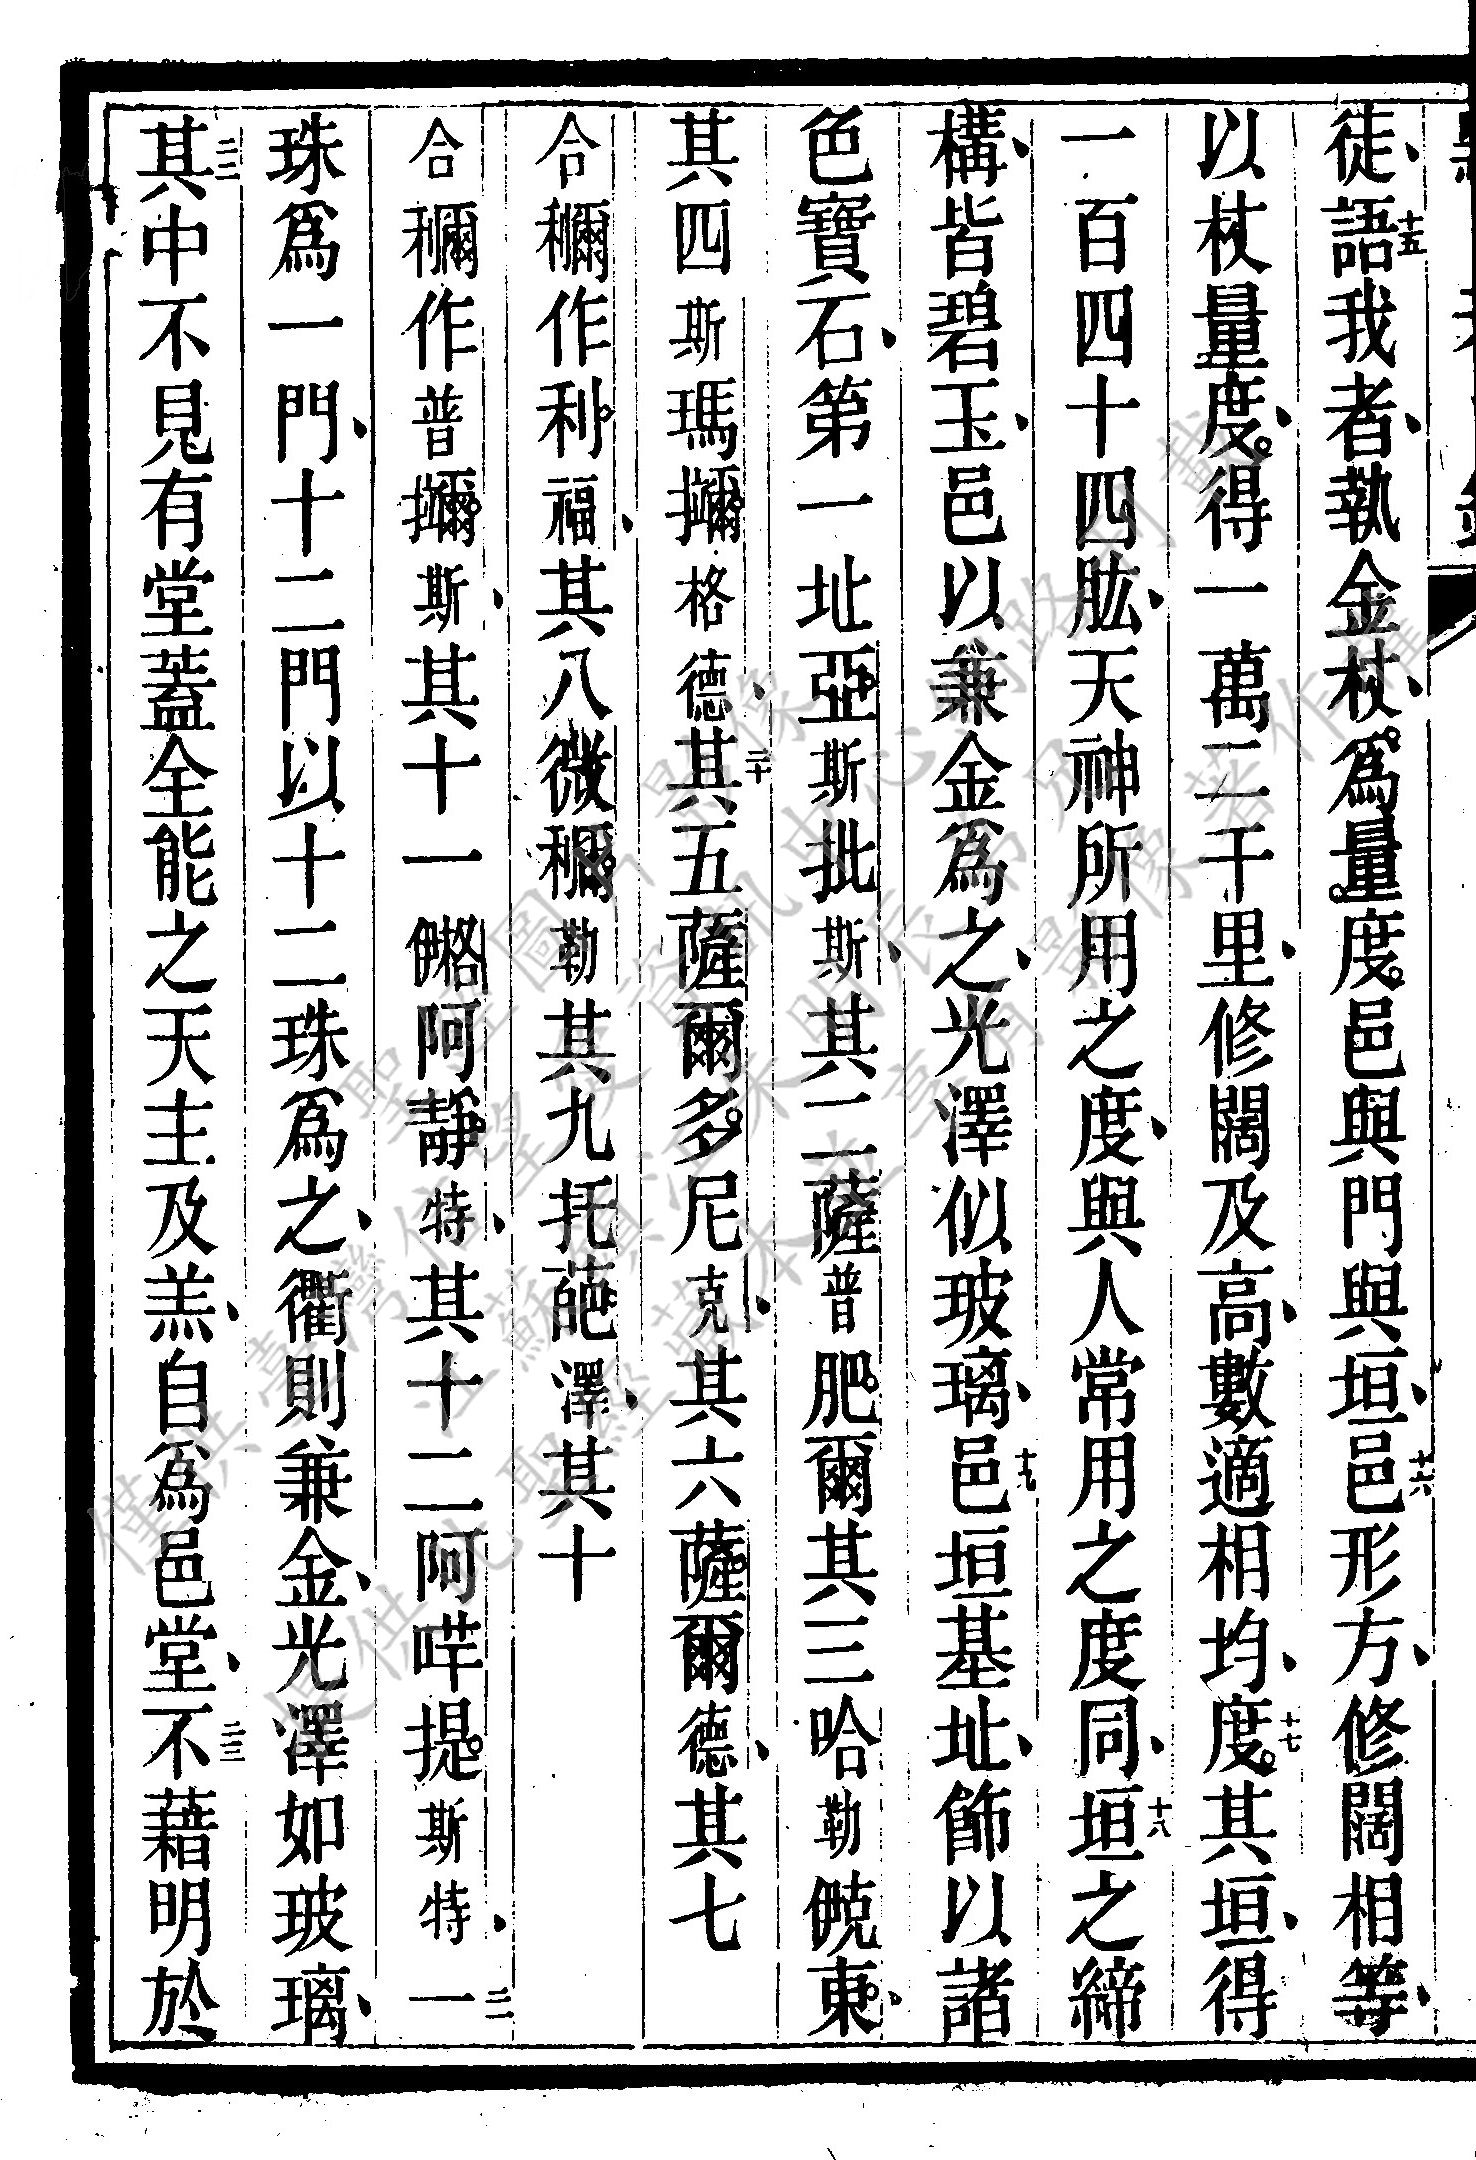 徒、十五語我者、執金杖、爲量度。邑與門與垣、十六邑形方、修闊相等、
以杖量度、得一萬二千里、修闊及高、數適相均、十七度其垣、得
一百四十四肱、天神所用之度、與人常用之度同、十八垣之締
構、皆碧玉、邑以兼金爲之、光澤似玻璃、十九邑垣基址、飾以諸
色寶石、第一址亞斯批斯、其二薩普肥爾其三哈勒東、
其四斯瑪格德、二十其五薩爾多尼克、其六薩爾德、其七
合作利福、其八微勒其九托葩澤、其十
合作普斯、其十一阿靜特、其十二阿提斯特、二一
珠爲一門、十二門以十二珠爲之、衢則兼金、光澤如玻璃、
二二其中不見有堂蓋全能之天主及羔、自爲邑堂、二三不藉明於